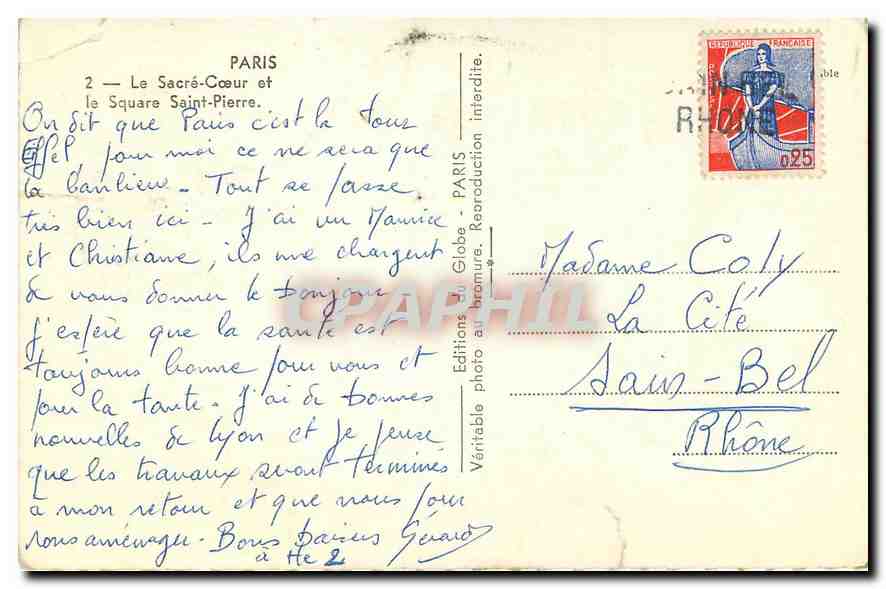 PARIS
2 — Le Sacré-Cœur et
le Square Saint-Pierre.
On dit que Paris c'est la tour
Eiffel, pour moi ce ne sera que
la banlieue - Tout se passe
très bien ici - J'ai vu Maurice
et Christiane, ils me chargent
de vous donner le bonjour
J'espère que la santé est
toujours bonne pour vous et
pour la tante. J'ai de bonnes
nouvelles de Lyon et je pense
que les travaux seront terminés
à mon retour et que nous pour
rons aménager - Bons baisers Gérard
à
Editions du Globe - PARIS
Véritable photo au bromure. Reproduction interdite.
REPUBLIQUE FRANÇAISE
0,25
RHONE
CPAPHIL
Madame Coly
La Cité
Sain-Bel
Rhône